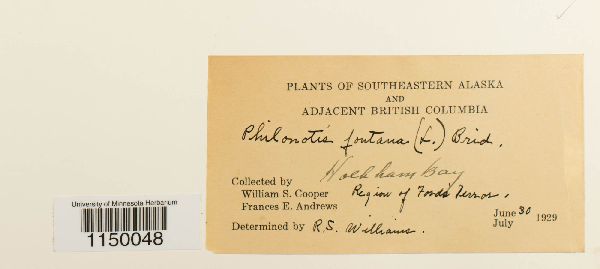 PLANTS OF SOUTHEASTERN ALASKA
AND
ADJACENT BRITISH COLUMBIA
Philonotis fontana (L.) Brid.
Holkham Bay
Collected by
William S. Cooper
Frances E. Andrews
Region of Fords Terror.
June 30
July
1929
Determined by R.S. Williams.
University of Minnesota Herbarium
1150048